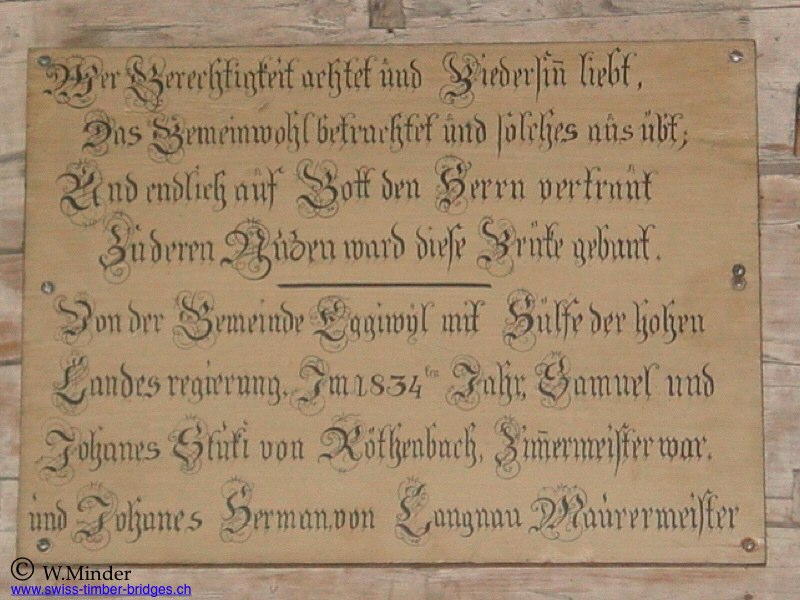 Wer Gerechtigkeit achtet und Biedersin̄ liebt,
Das Gemeinwohl betrachtet und solches aus übt;
Und endlich auf Gott den Herrn vertraut
Zu deren Nuzen ward diese Brüke gebaut.
Von der Gemeinde Eggiwÿl mit Hülfe der hohen
Landesregierung. Im 1834ten Jahr, Samuel und
Johanes Stuki von Röthenbach, Zim̄ermeister war.
und Johanes Herman, von Langnau Maurermeister
© W.Minder
www.swiss-timber-bridges.ch